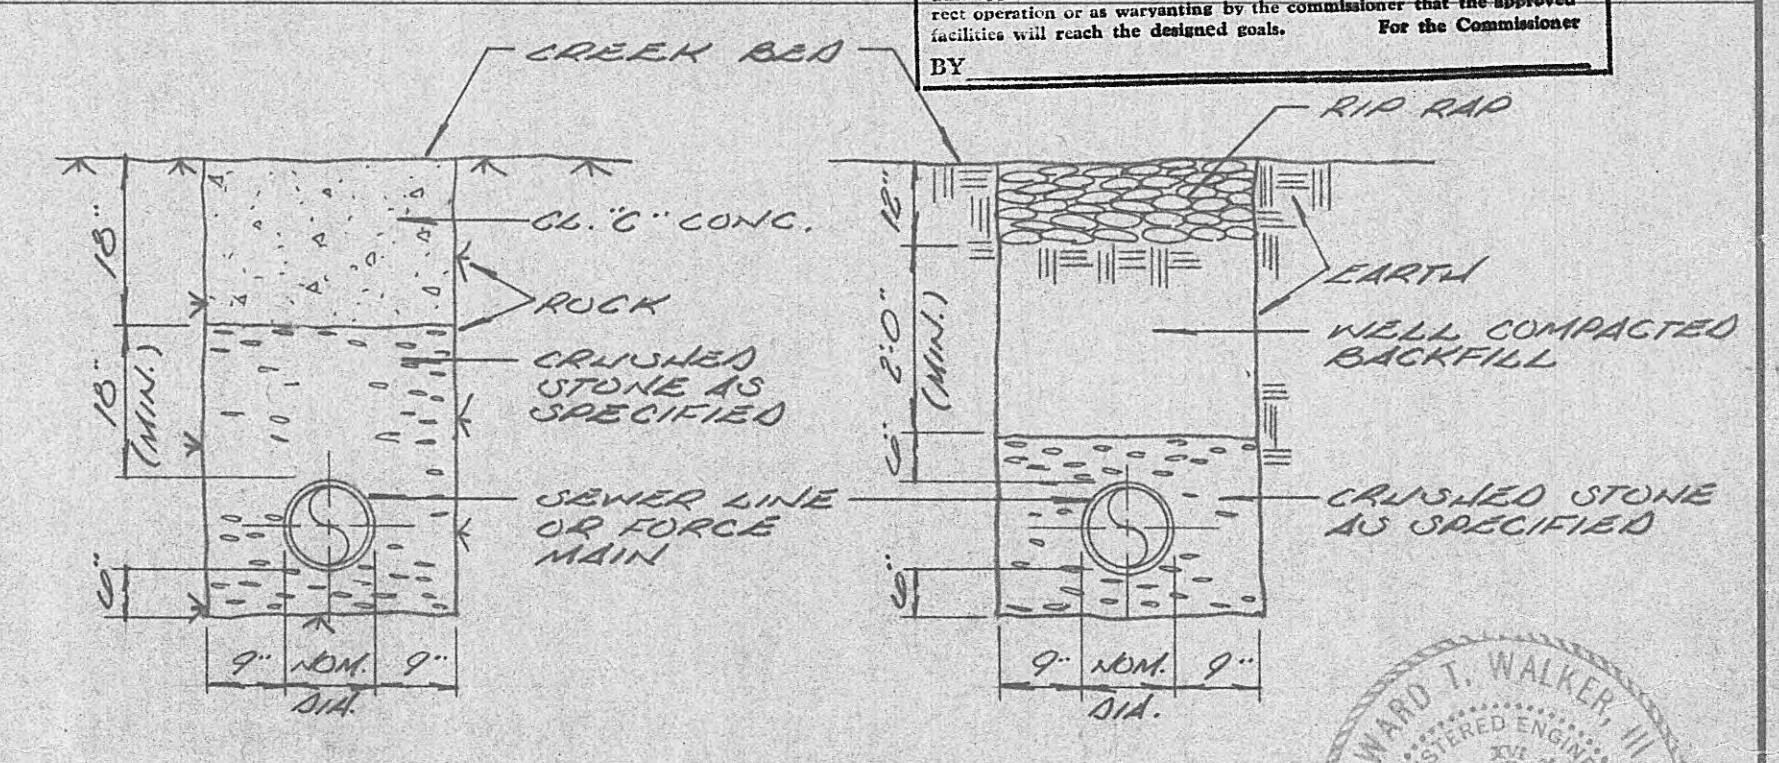 rect operation or as warranting by the commissioner that the approved
facilities will reach the designed goals. For the Commissioner
BY
CREEK BED
RIP RAP
18"
CL. "C" CONC.
ROCK
18"
(MIN.)
CRUSHED
STONE AS
SPECIFIED
SEWER LINE
OR FORCE
MAIN
6"
9" NOM. 9"
DIA.
12"
EARTH
2'-0"
(MIN.)
WELL COMPACTED
BACKFILL
6"
CRUSHED STONE
AS SPECIFIED
6"
9" NOM. 9"
DIA.
WARD T. WALKER, III
STERED ENGIN
XVI